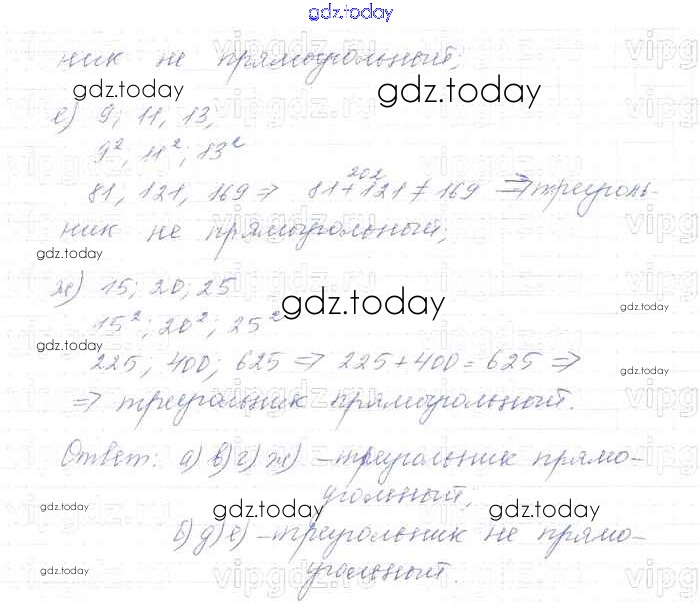 gdz.today
ник не прямоугольный;
gdz.today
gdz.today
е) 9; 11, 13,
9², 11²; 13²
202
81, 121, 169 ⇒ 81+121 ≠ 169 ⇒ треуголь-
ник не прямоугольный;
gdz.today
ж) 15; 20; 25
gdz.today
gdz.today
15²; 20²; 25²
gdz.today
225; 400; 625 ⇒ 225+400=625 ⇒
gdz.today
⇒ треугольник прямоугольный.
Ответ: а) в) г) ж) – треугольник прямо-
угольный;
gdz.today
gdz.today
gdz.today
б) д) е) – треугольник не прямо-
угольный.
gdz.today
gdz.today